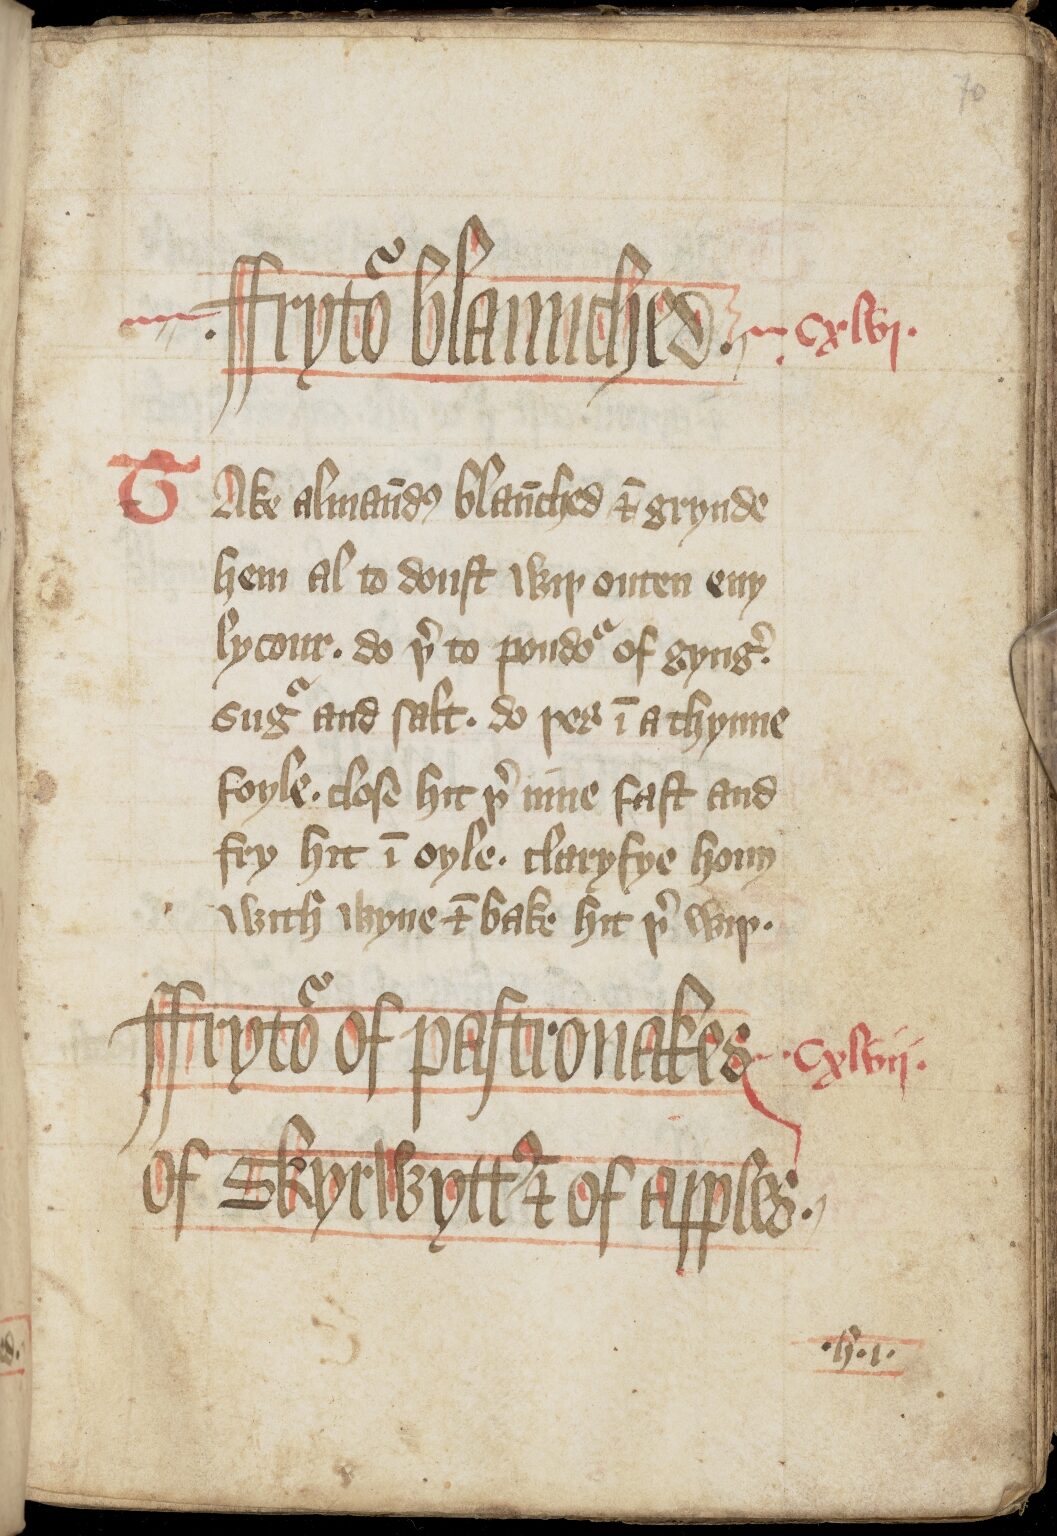 70
ffrytoᵃ blaunched. cxlvi.
Take almaūdꝭ blaūched ⁊ grynde
hem al to douſt wiþ outen eny
lycour. do þ̉ to poudoᵃ of gyng̉.
Sugᵃ and ſalt. do þes ī a thynne
foyle. cloſe hit þ̉ īne faſt and
fry hit ī oyle. claryfye hony
with wyne ⁊ bake hit þ̉ wiþ.
ffrytoᵃ of paſtronakes cxlvii.
of Skyrwyttꝭ ⁊ of apples.
.h.i.